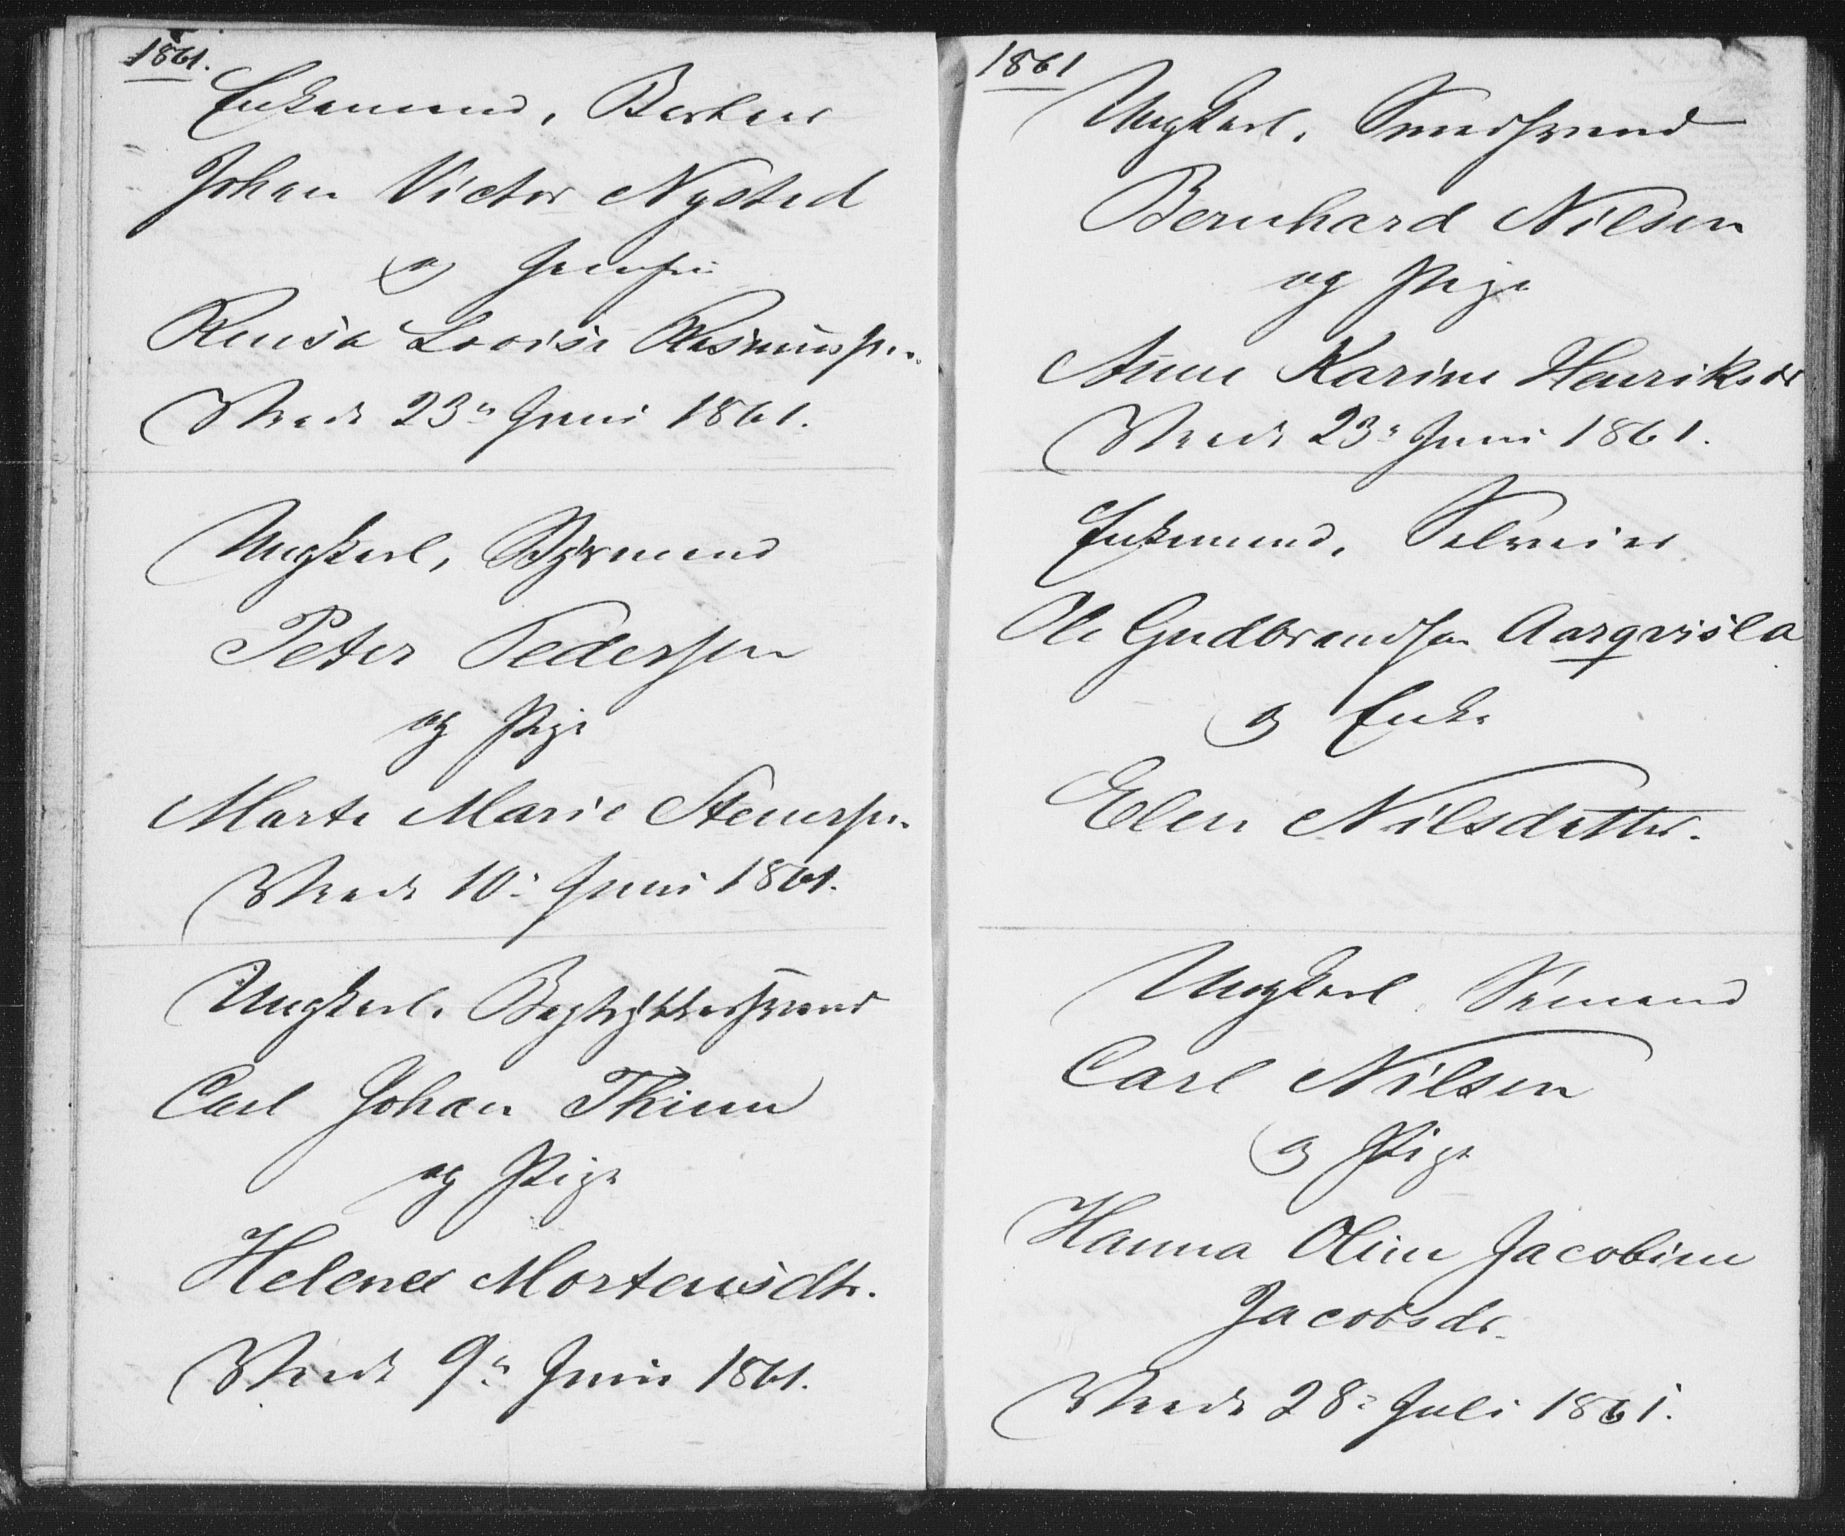 1861.
Enkemand, Barber
Johan Victor Nysted
og Jomfru
Rensa Lovise Rasmussen
Viede 23de Juni 1861.
Ungkarl, Bymand
Peter Pedersen
og Pige
Marte Marie Stenersen
Viede 10de Juni 1861.
Ungkarl, Bogtrykkersvend
Carl Johan Thinn
og Pige
Helene Mortensdtr.
Viede 9de Juni 1861.
1861
Ungkarl, Smedsvend
Bernhard Nilsen
og Pige
Anne Karine Henriksdr
Viede 23de Juni 1861.
Enkemand, Selveier
Ole Gudbrandsen Aarqvisla
og Enke
Elen Nilsdatter.
Ungkarl, Sømand
Carl Nilsen
og Pige
Hanna Oline Jacobine
Jacobsdr.
Viede 28de Juli 1861.